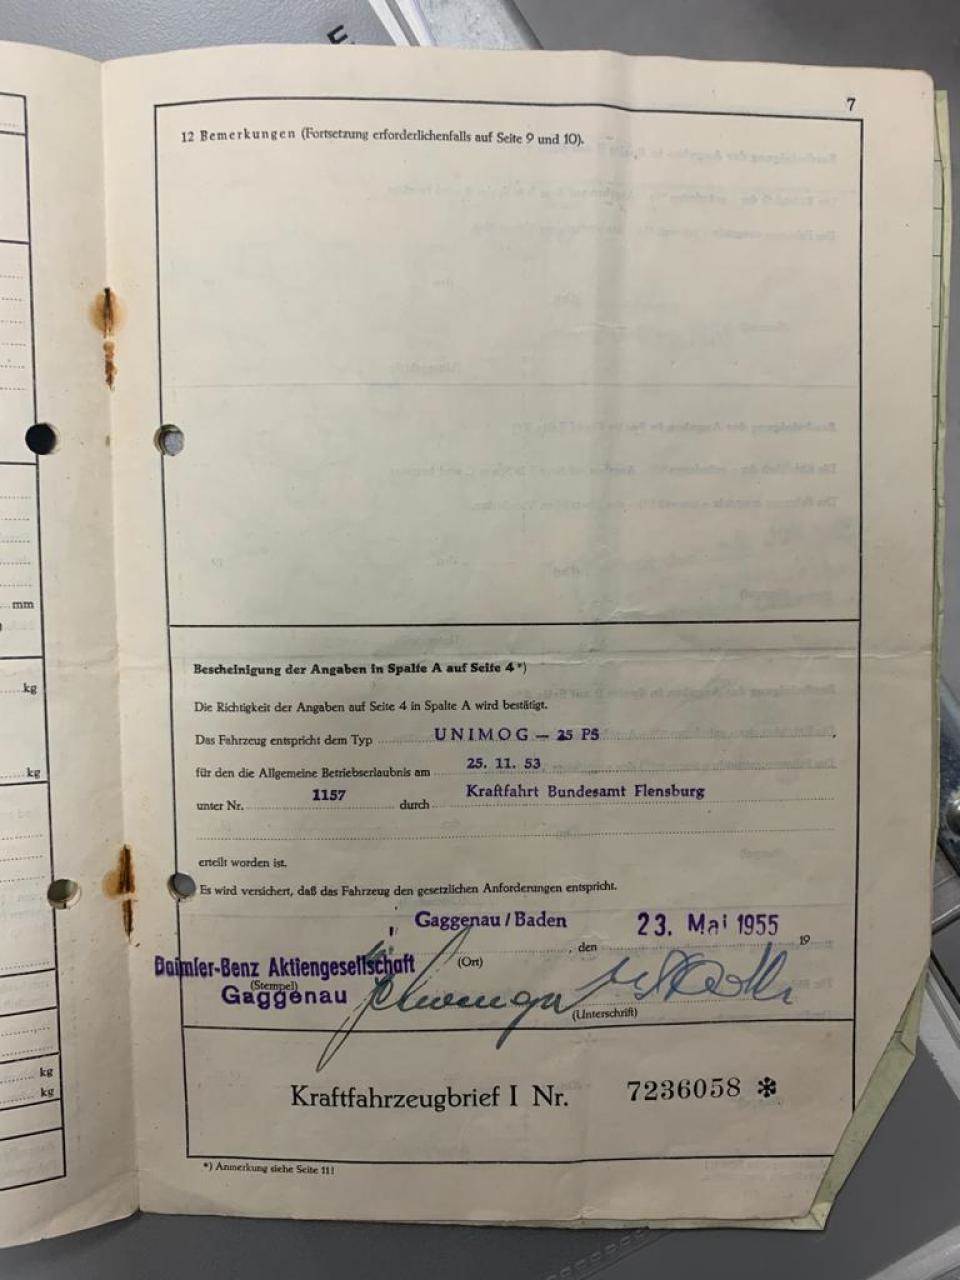 7
12 Bemerkungen (Fortsetzung erforderlichenfalls auf Seite 9 und 10).
mm
kg
kg
kg
kg
Bescheinigung der Angaben in Spalte A auf Seite 4*)
Die Richtigkeit der Angaben auf Seite 4 in Spalte A wird bestätigt.
Das Fahrzeug entspricht dem Typ UNIMOG — 25 PS
für den die Allgemeine Betriebserlaubnis am 25. 11. 53
unter Nr. 1157 durch Kraftfahrt Bundesamt Flensburg
erteilt worden ist.
Es wird versichert, daß das Fahrzeug den gesetzlichen Anforderungen entspricht.
Gaggenau/Baden, den 23. Mai 1955 19
Daimler-Benz Aktiengesellschaft (Ort)
(Stempel)
Gaggenau
(Unterschrift)
Kraftfahrzeugbrief I Nr. 7236058 ✻
*) Anmerkung siehe Seite 11!